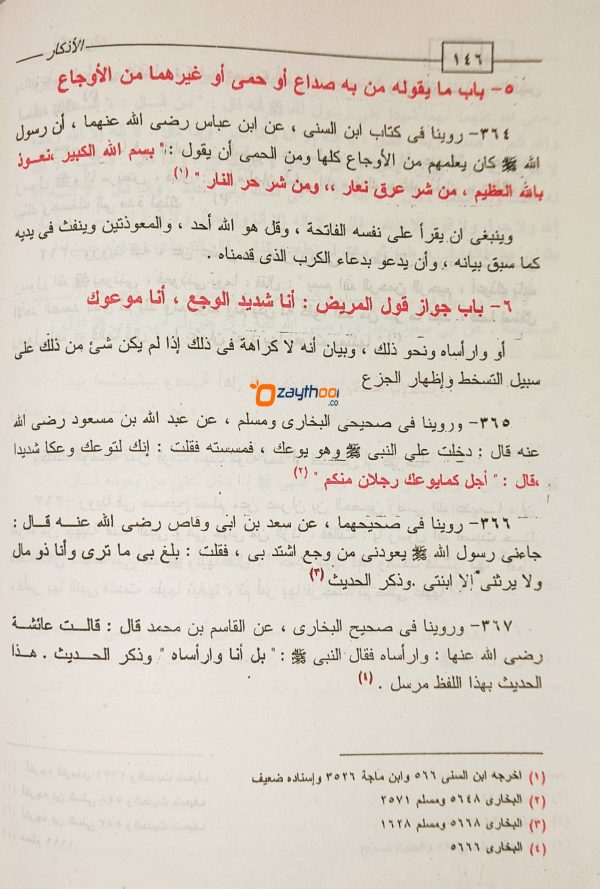 الأذكار
١٤٦
٥- باب ما يقوله من به صداع أو حمى أو غيرهما من الأوجاع
٣٦٤- روينا فى كتاب ابن السنى ، عن ابن عباس رضى الله عنهما ، أن رسول
الله ﷺ كان يعلمهم من الأوجاع كلها ومن الحمى أن يقول : " بسم الله الكبير ،نعوذ
بالله العظيم ، من شر عرق نعار ،، ومن شر حر النار " (١)
وينبغى ان يقرأ على نفسه الفاتحة ، وقل هو الله أحد ، والمعوذتين وينفث فى يديه
كما سبق بيانه ، وأن يدعو بدعاء الكرب الذى قدمناه .
٦- باب جواز قول المريض : أنا شديد الوجع ، أنا موعوك
أو وارأساه ونحو ذلك ، وبيان أنه لا كراهة فى ذلك إذا لم يكن شئ من ذلك على
سبيل التسخط وإظهار الجزع
zaythoon
.co
٣٦٥- وروينا فى صحيحى البخارى ومسلم ، عن عبد الله بن مسعود رضى الله
عنه قال : دخلت علي النبى ﷺ وهو يوعك ، فمسسته فقلت : إنك لتوعك وعكا شديدا
،قال : " أجل كمايوعك رجلان منكم " (٢)
٣٦٦- روينا فى صحيحهما ، عن سعد بن ابى وفاص رضى الله عنه قال :
جاءنى رسول الله ﷺ يعودنى من وجع اشتد بى ، فقلت : بلغ بى ما ترى وأنا ذو مال
ولا يرثنى إلا ابنتى .وذكر الحديث (٣)
٣٦٧- وروينا فى صحيح البخارى ، عن القاسم بن محمد قال : قالت عائشة
رضى الله عنها : وارأساه فقال النبى ﷺ : " بل أنا وارأساه " وذكر الحديث . هذا
الحديث بهذا اللفظ مرسل . (٤)
(١) اخرجه ابن السنى ٥٦٦ وابن ماجة ٣٥٢٦ وإسناده ضعيف
(٢) البخارى ٥٦٤٨ ومسلم ٢٥٧١
(٣) البخارى ٥٦٦٨ ومسلم ١٦٢٨
(٤) البخارى ٥٦٦٦